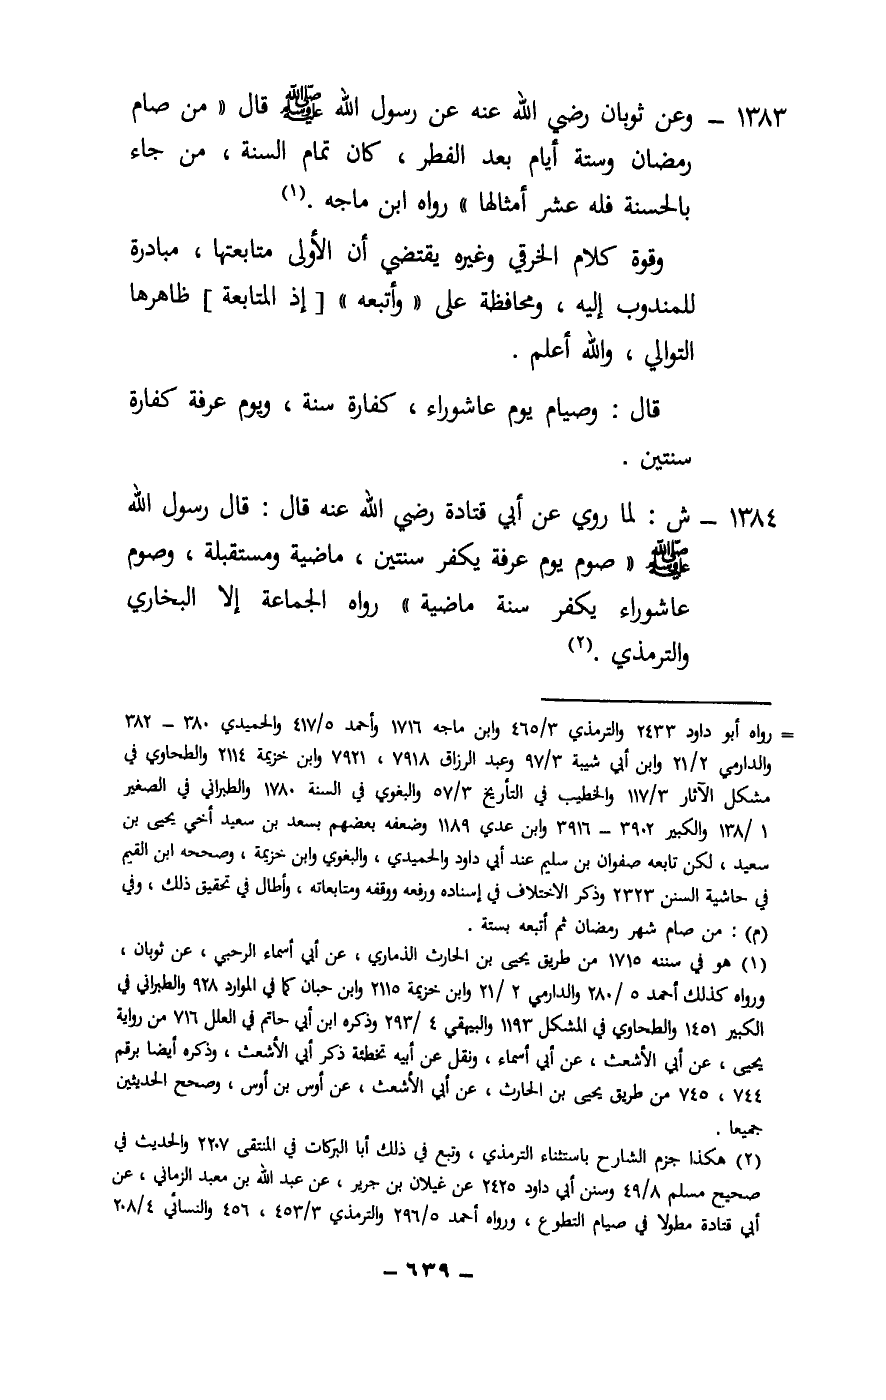 ١٣٨٣ – وعن ثوبان رضي الله عنه عن رسول الله ﷺ قال « من صام
رمضان وستة أيام بعد الفطر ، كان تمام السنة ، من جاء
بالحسنة فله عشر أمثالها » رواه ابن ماجه .(١)
وقوة كلام الخرقي وغيره يقتضي أن الأولى متابعتها ، مبادرة
للمندوب إليه ، ومحافظة على « وأتبعه » [ إذ المتابعة ] ظاهرها
التوالي ، والله أعلم .
قال : وصيام يوم عاشوراء ، كفارة سنة ، ويوم عرفة كفارة
سنتين .
١٣٨٤ – ش : لما روي عن أبي قتادة رضي الله عنه قال : قال رسول الله
ﷺ « صوم يوم عرفة يكفر سنتين ، ماضية ومستقبلة ، وصوم
عاشوراء يكفر سنة ماضية » رواه الجماعة إلا البخاري
والترمذي .(٢)
= رواه أبو داود ٢٤٣٣ والترمذي ٤٦٥/٣ وابن ماجه ١٧١٦ وأحمد ٤١٧/٥ والحميدي ٣٨٠ – ٣٨٢
والدارمي ٢١/٢ وابن أبي شيبة ٩٧/٣ وعبد الرزاق ٧٩١٨ ، ٧٩٢١ وابن خزيمة ٢١١٤ والطحاوي في
مشكل الآثار ١١٧/٣ والخطيب في التأريخ ٥٧/٣ والبغوي في السنة ١٧٨٠ والطبراني في الصغير
١ /١٣٨ والكبير ٣٩٠٢ – ٣٩١٦ وابن عدي ١١٨٩ وضعفه بعضهم بسعد بن سعيد أخي يحيى بن
سعيد ، لكن تابعه صفوان بن سليم عند أبي داود والحميدي ، والبغوي وابن خزيمة ، وصححه ابن القيم
في حاشية السنن ٢٣٢٣ وذكر الاختلاف في إسناده ورفعه ووقفه ومتابعاته ، وأطال في تحقيق ذلك ، وفي
(م) : من صام شهر رمضان ثم أتبعه بستة .
(١) هو في سننه ١٧١٥ من طريق يحيى بن الحارث الذماري ، عن أبي أسماء الرحبي ، عن ثوبان ،
ورواه كذلك أحمد ٥ /٢٨٠ والدارمي ٢ /٢١ وابن خزيمة ٢١١٥ وابن حبان كما في الموارد ٩٢٨ والطبراني في
الكبير ١٤٥١ والطحاوي في المشكل ١١٩٣ والبيهقي ٤ /٢٩٣ وذكره ابن أبي حاتم في العلل ٧١٦ من رواية
يحيى ، عن أبي الأشعث ، عن أبي أسماء ، ونقل عن أبيه تخطئة ذكر أبي الأشعث ، وذكره أيضا برقم
٧٤٤ ، ٧٤٥ من طريق يحيى بن الحارث ، عن أبي الأشعث ، عن أوس بن أوس ، وصحح الحديثين
جميعا .
(٢) هكذا جزم الشارح باستثناء الترمذي ، وتبع في ذلك أبا البركات في المنتقى ٢٢٠٧ والحديث في
صحيح مسلم ٤٩/٨ وسنن أبي داود ٢٤٢٥ عن غيلان بن جرير ، عن عبد الله بن معبد الزماني ، عن
أبي قتادة مطولا في صيام التطوع ، ورواه أحمد ٢٩٦/٥ والترمذي ٤٥٣/٣ ، ٤٥٦ والنسائي ٢٠٨/٤
– ٦٣٩ –